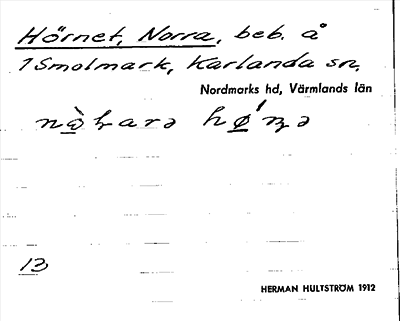 Hörnet, Norra, beb. å
1 Smolmark, Karlanda sn,
Nordmarks hd, Värmlands län
13
HERMAN HULTSTRÖM 1912